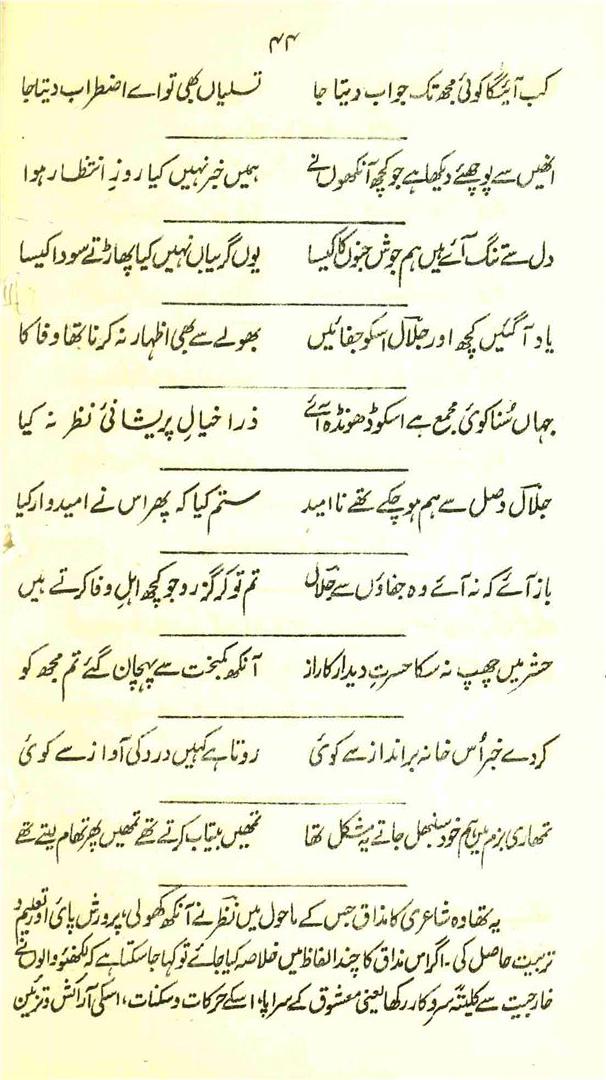 ۴۴
کب آئیگا کوئی مجھ تک جواب دیتا جا تسلیاں بھی تو اے اضطراب دیتا جا
انھیں سے پوچھئے دیکھا ہے جو کچھ آنکھوں نے ہمیں خبر نہیں کیا روزِ انتظار ہوا
دل سے تنگ آئے ہیں ہم جوش جنوں کا کیسا یوں گریباں نہیں کیا پھاڑتے سودا کیسا
یاد آگئیں کچھ اور جلال اسکو جفائیں بھولے سے بھی اظہار نہ کرنا تھا وفا کا
جہاں سُنا کوئی مجمع ہے اسکو ڈھونڈھ آئے ذرا خیالِ پریشانیٔ نظر نہ کیا
جلال وصل سے ہم ہو چکے تھے ناامید ستم کیا کہ پھر اس نے امیدوار کیا
باز آئے کہ نہ آئے وہ جفاؤں سے جلال تم تو کر گزرو جو کچھ اہلِ وفا کرتے ہیں
حشر میں چھپ نہ سکا حسرتِ دیدار کا راز آنکھ کمبخت سے پہچان گئے تم مجھ کو
کردے خبر اُس خانہ برانداز سے کوئی روتا ہے کہیں درد کی آواز سے کوئی
تمھاری بزم میں ہم خود سنبھل جاتے یہ مشکل تھا تمھیں بیتاب کرتے تھے تمھیں پھر تھام لیتے تھے
یہ تھا وہ شاعری کا مذاق جس کے ماحول میں نظر نے آنکھ کھولی، پرورش پائی اور تعلیم و
تربیت حاصل کی۔ اگر اس مذاق کا چند الفاظ میں خلاصہ کیا جائے تو کہا جاسکتا ہے کہ لکھنؤ والوں نے
خارجیت سے کلیتہً سروکار رکھا یعنی معشوق کے سراپا، اسکے حرکات و سکنات، اسکی آرائش و تزئین